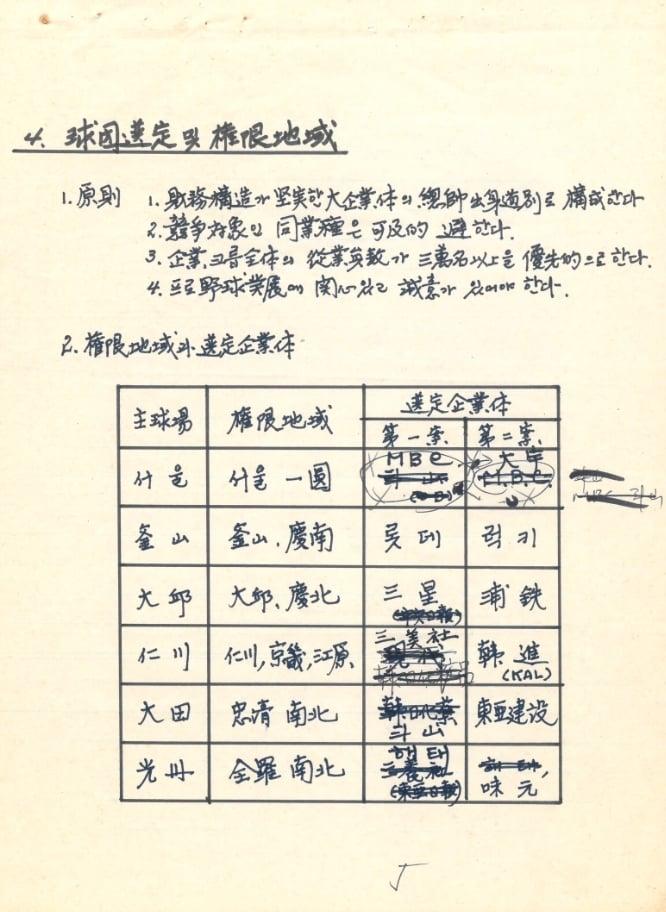 4. 球団選定 및 権限地域
1. 原則 1. 財務構造가 坚実한 大企業体의 總帥 出身道別로 構成한다
2. 競争対象인 同業種은 可及的 避한다.
3. 企業그룹全体의 從業員数가 三萬名以上을 優先的으로 한다.
4. 프로野球発展에 関心있고 誠意가 있어야 한다.
2. 権限地域과 選定企業体
主球場 権限地域 選定企業体
第一案 第二案
서울 서울 一圓 MBC 大宇
두산 M.B.C.
釜山 釜山, 慶南 롯데 럭키
大邱 大邱, 慶北 三星 浦鉄
(中央日報)
仁川 仁川, 京畿, 江原 三美社 韓進
現代 (KAL)
大田 忠清南北 韓国化薬 東亜建設
斗山
光州 全羅南北 해태 해태,
三養社 味元
(東亜日報)
5